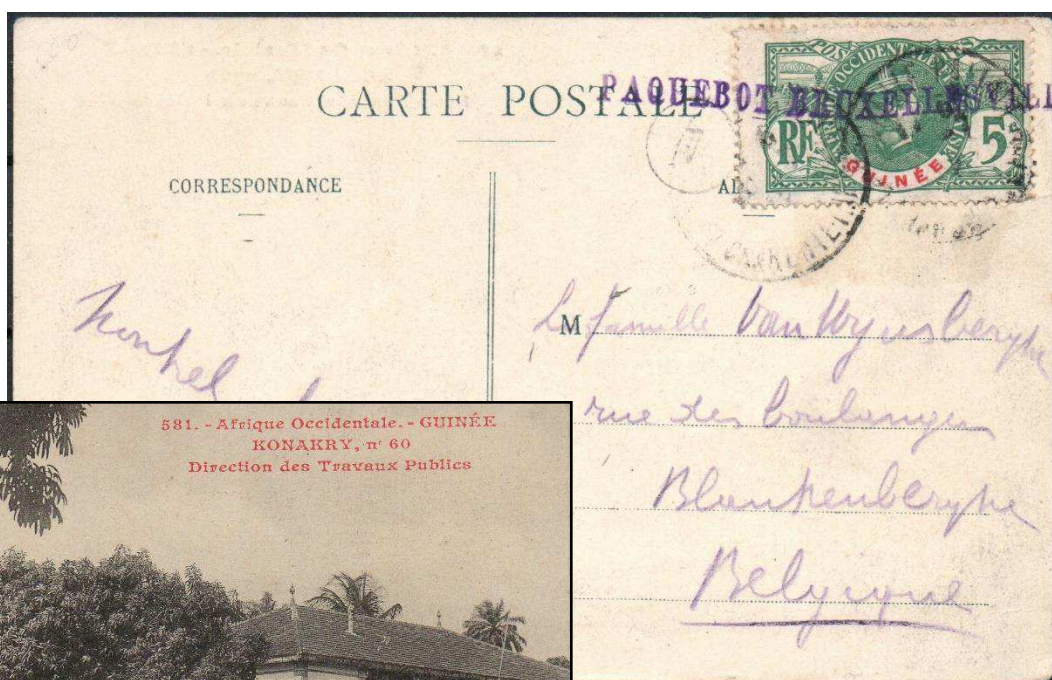 CARTE POSTALE
PAQUEBOT BRUXELLESVILLE
AFRIQUE OCCIDENTALE FRANÇAISE
POSTES
RF
5
GUINÉE
CORRESPONDANCE
M
La famille Van Wynsberghe
rue des boulangers
Blankenberghe
Belgique
581. - Afrique Occidentale. - GUINÉE
KONAKRY, nº 60
Direction des Travaux Publics